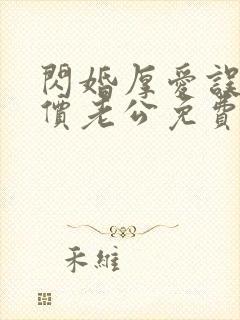 閃婚厚愛誤
價老公免費
禾維